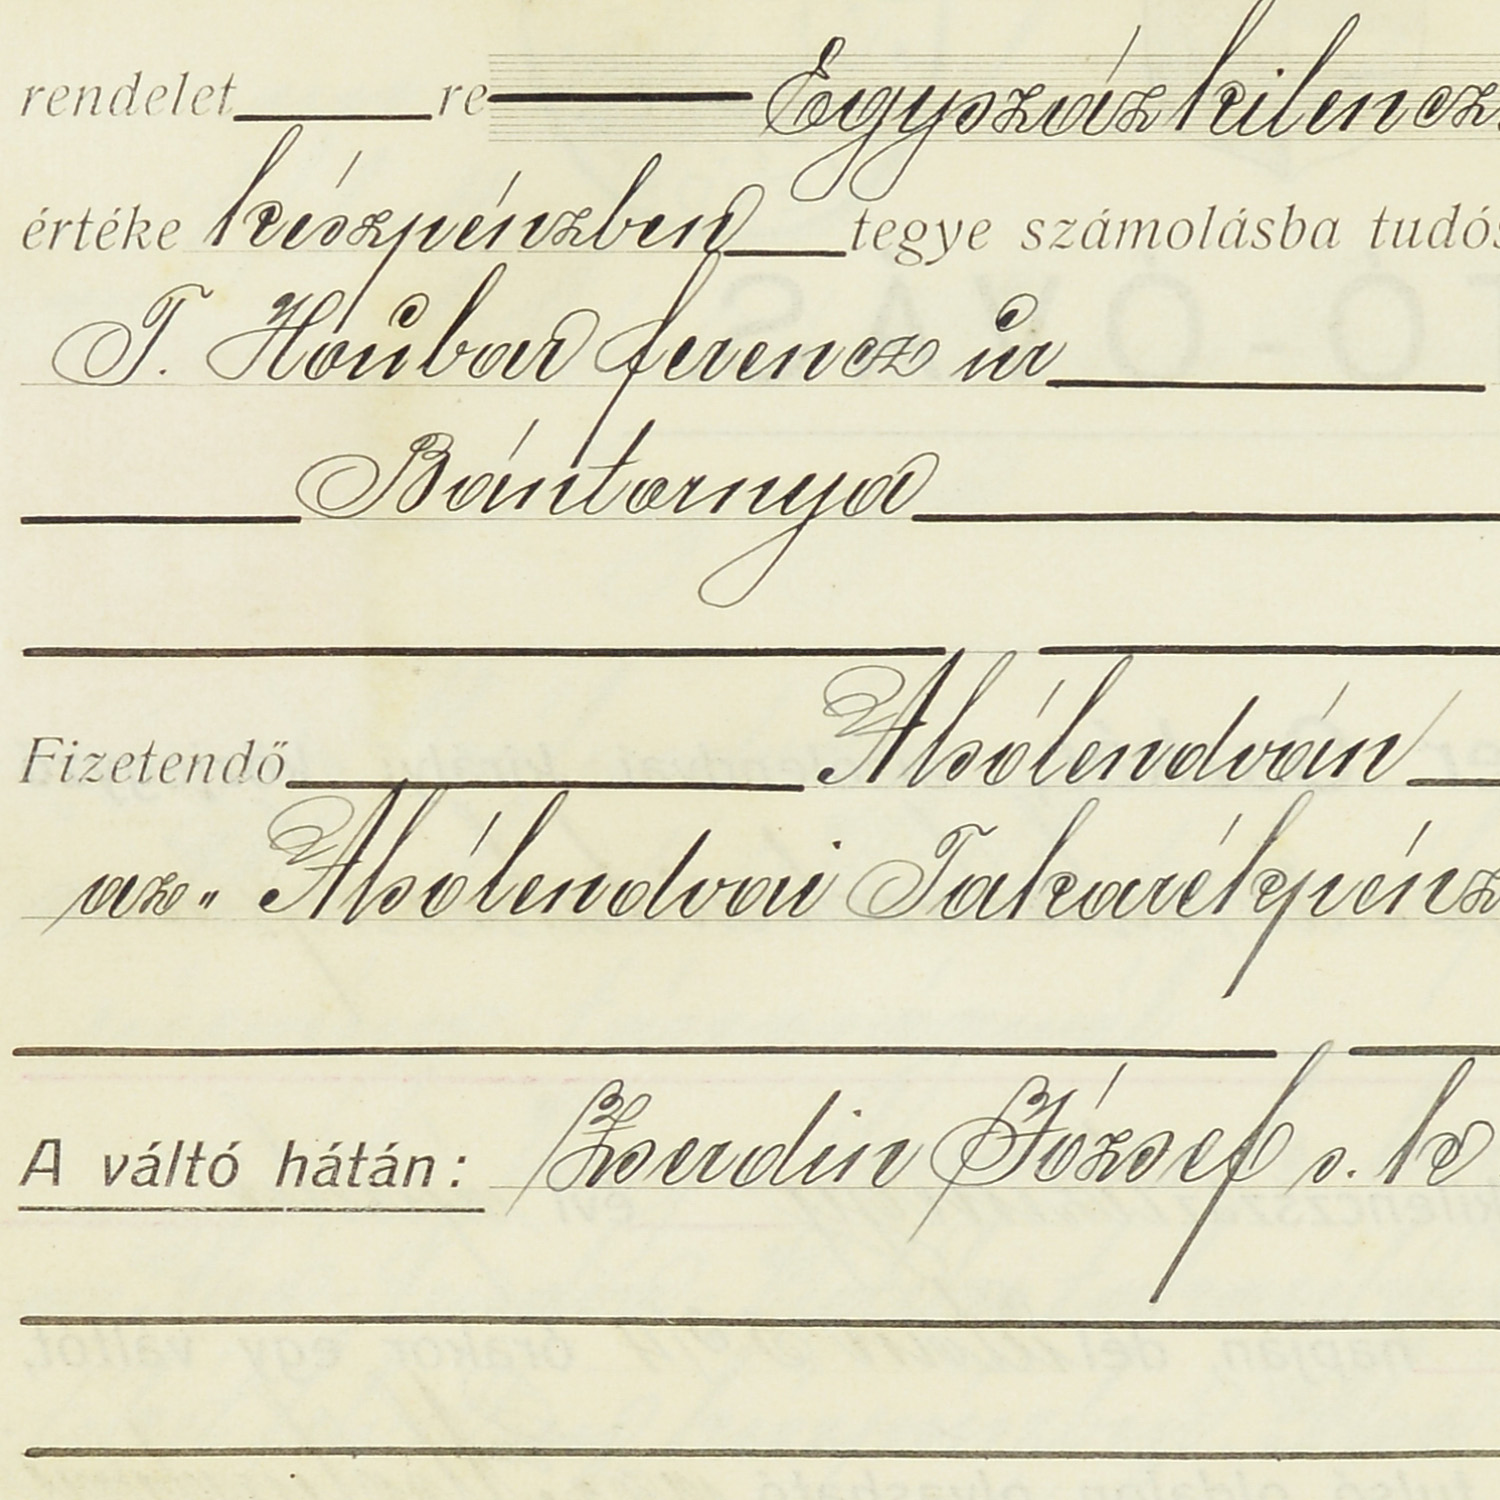 rendelet re Egyszázkilencz
értéke készpénzben tegye számolásba tudós
T. Houbar ferencz úr
Bántornya
Fizetendő Alsólendván
az „ Alsólendvai Takarékpénz
A váltó hátán: Zserdin József s. k